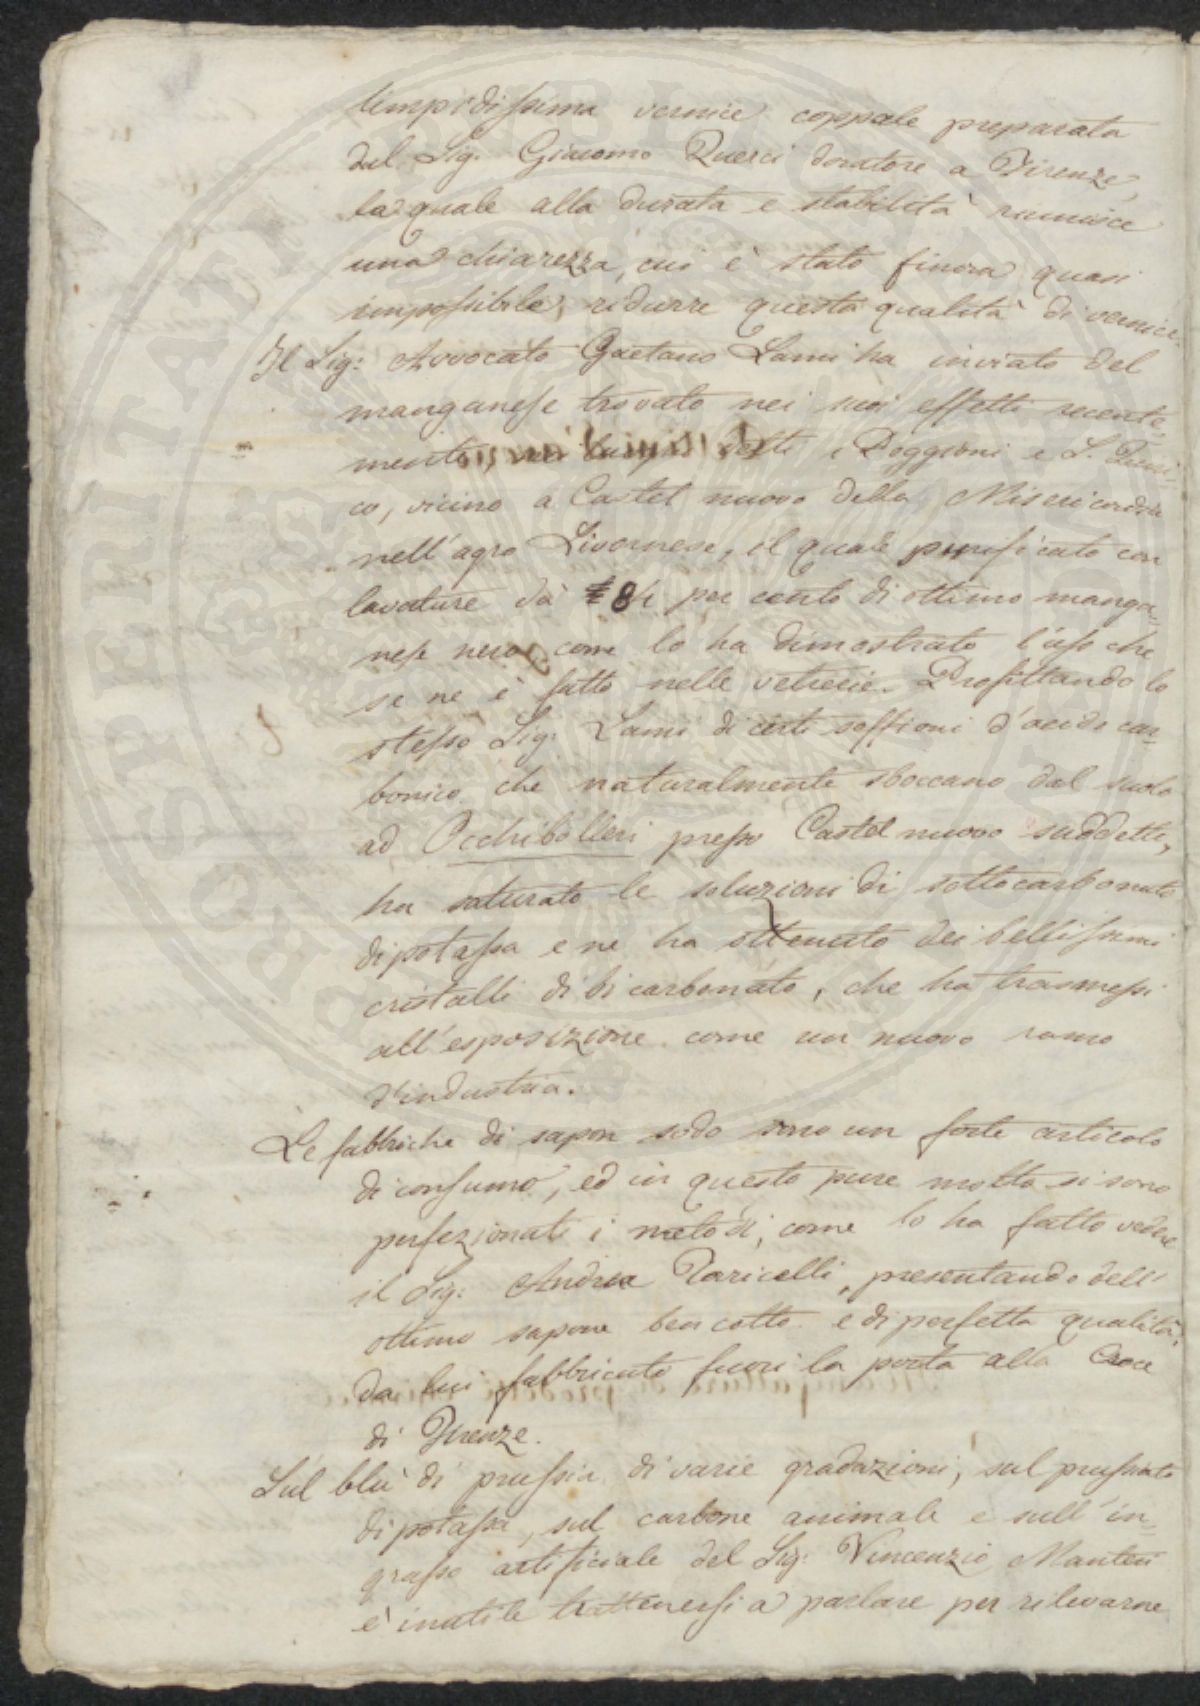 limpidissima vernice coppale preparata
dal Sig. Giacomo Querci doratore a Firenze,
la quale alla durata e stabilità riunisce
una chiarezza, cui è stato finora quasi
impossibile, ridurre questa qualità di vernice.
Il Sig: Avvocato Gaetano Lami ha inviato del
manganese trovato nei suoi effetti recente-
mente, nei luoghi detti i Poggioni e S. Quiri-
co, vicino a Castel nuovo della Misericordia
nell'agro Livornese, il quale purificato con
lavature dà 84 per cento di ottimo manga-
nese nero, come lo ha dimostrato l'uso che
se ne è fatto nelle vetrerie. Profittando lo
stesso Sig: Lami di certi soffioni d'acido car-
bonico che naturalmente sboccano dal suolo
ad Occhibolleri presso Castel nuovo suddetto,
ha saturato le soluzioni di sottocarbonato
di potassa e ne ha ottenuto dei bellissimi
cristalli di bicarbonato, che ha trasmessi
all'esposizione come un nuovo ramo
d'industria.
Le fabbriche di sapon sodo sono un forte articolo
di consumo, ed in questo pure molto si sono
perfezionati i metodi, come lo ha fatto vedere
il Sig: Andrea Paricelli, presentando dell'
ottimo sapone ben cotto e di perfetta qualità,
da lui fabbricato fuori la porta alla Croce
di Firenze.
Sul blù di prussia di varie gradazioni, sul prussiato
di potassa, sul carbone animale e sull'in-
grasso artificiale del Sig: Vincenzio Manteri
è inutile trattenersi a parlare per rilevarne
PROSPERITATI